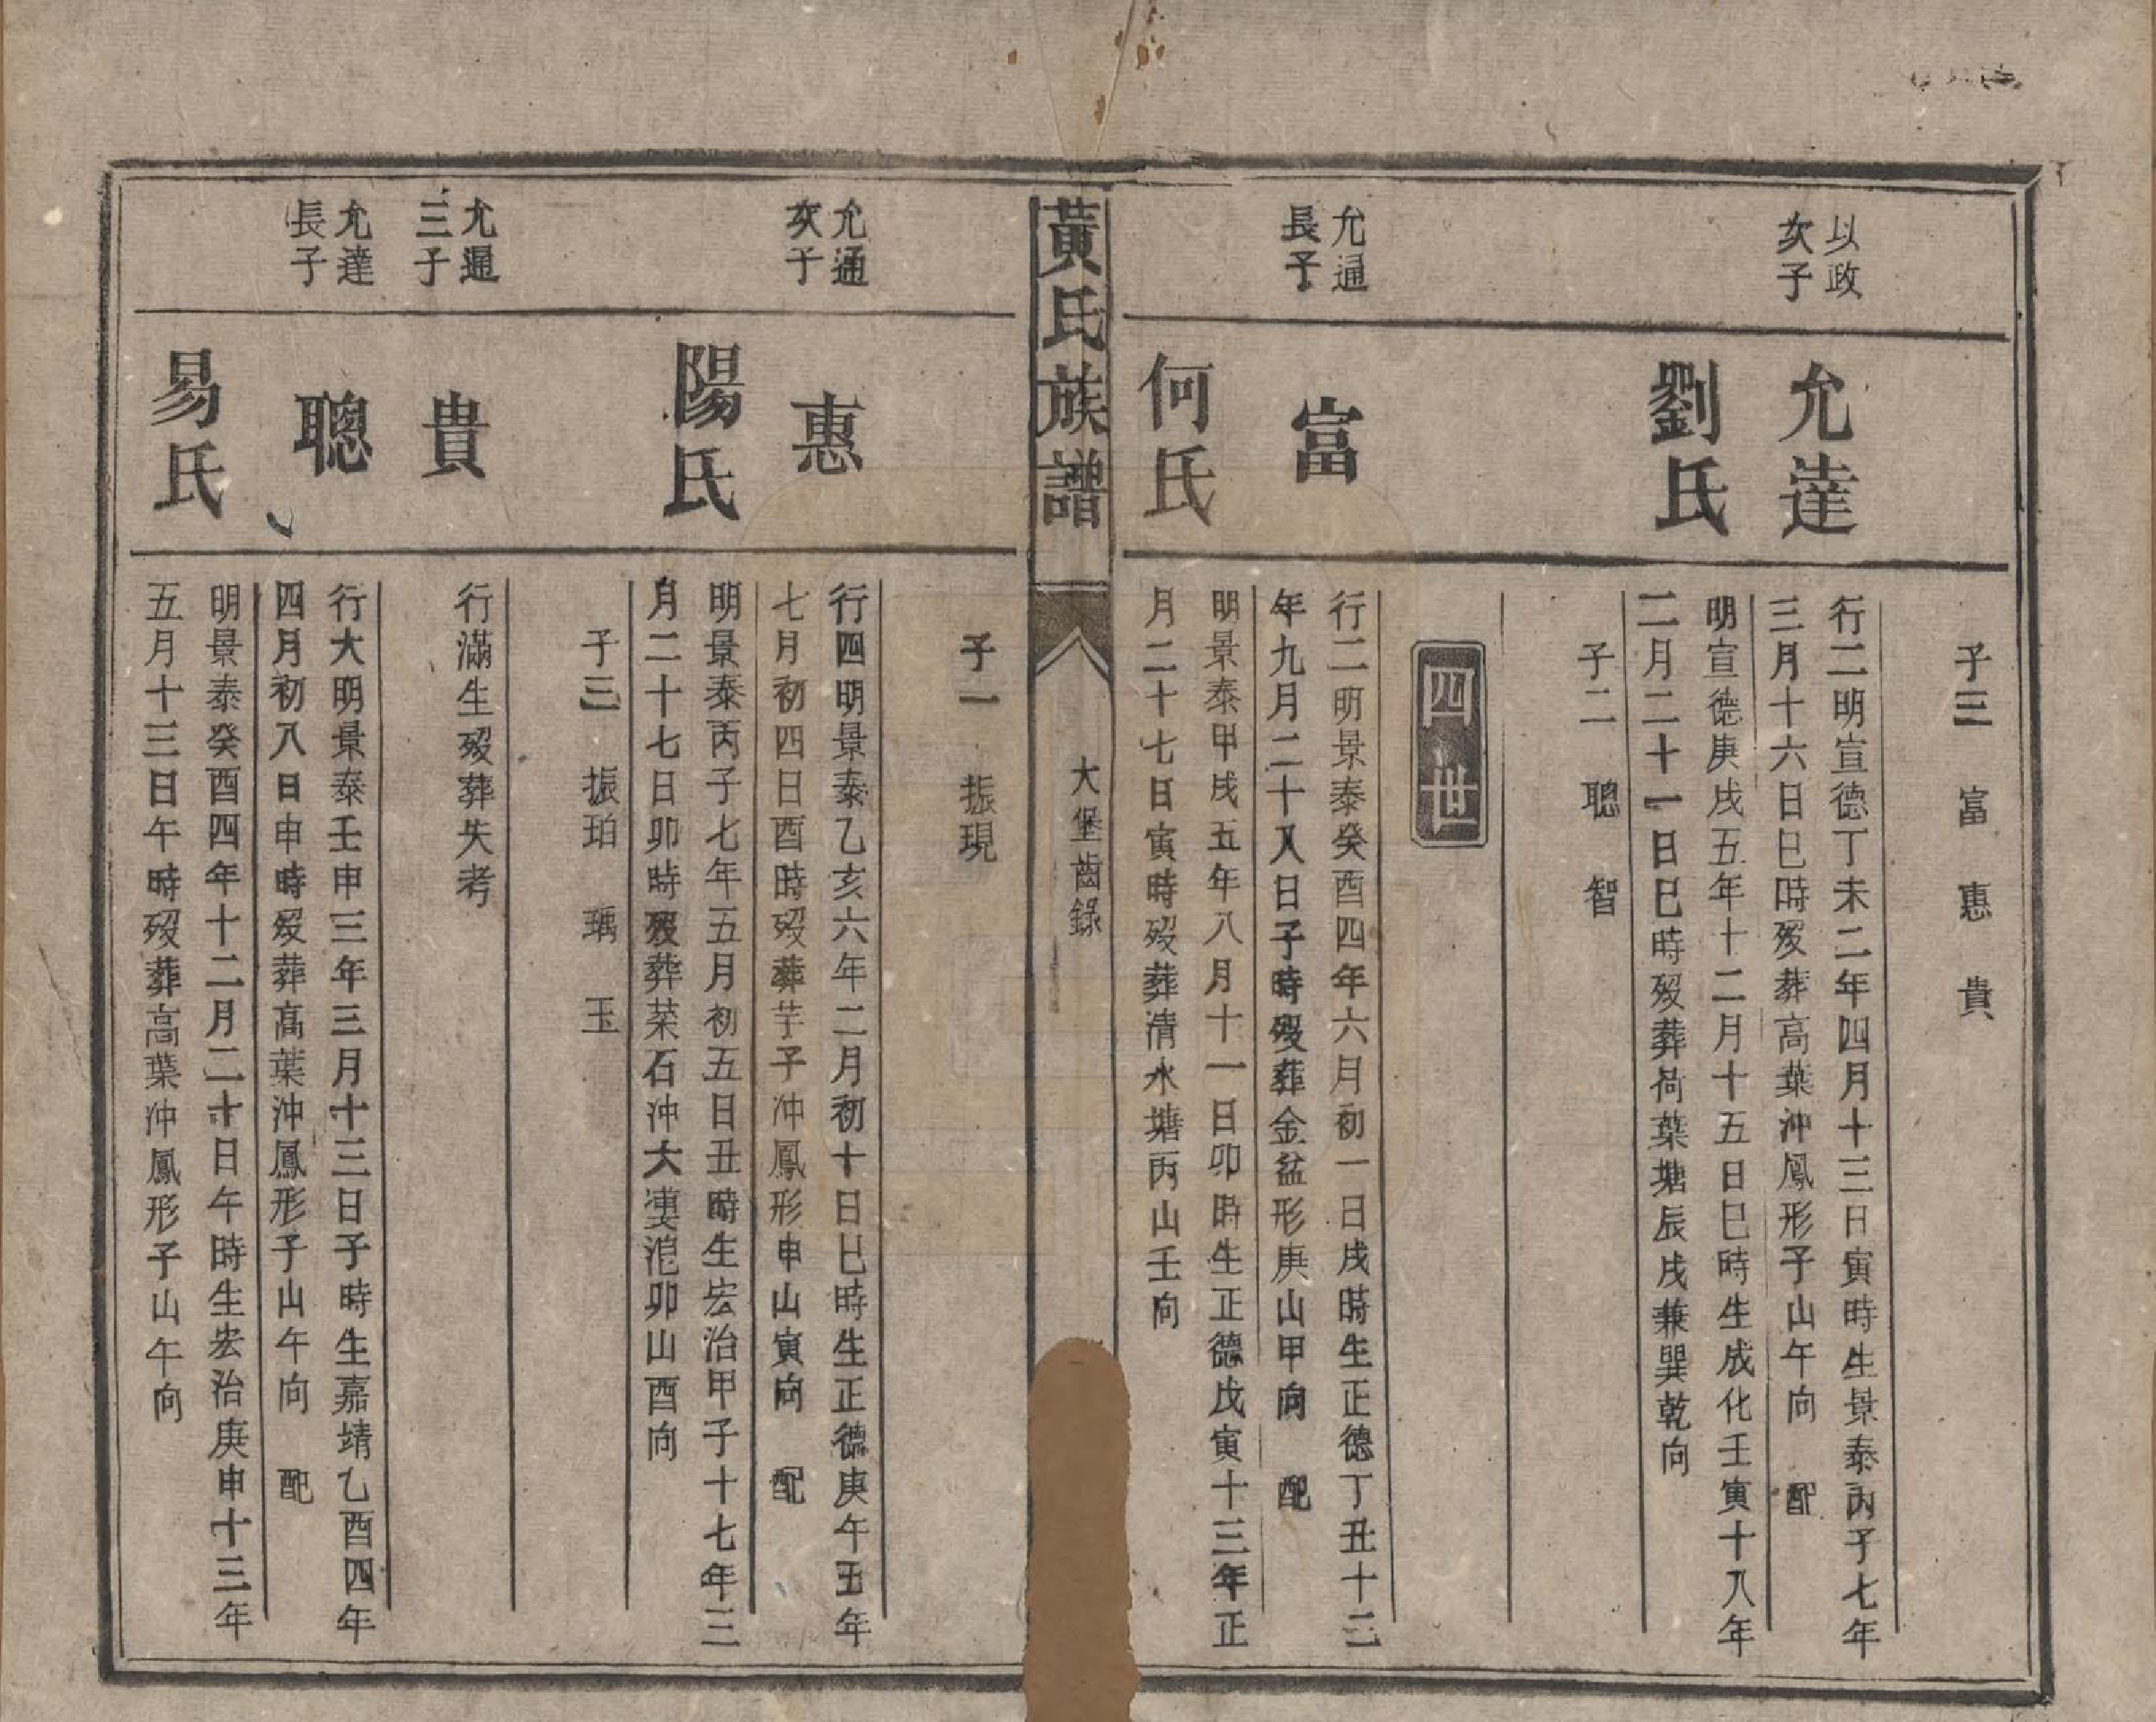 子三　富　惠　貴
以政
次子
允達
行二明宣德丁未二年四月十三日寅時生景泰丙子七年
三月十六日巳時歿葬高葉沖鳳形子山午向　配
劉氏
明宣德庚戌五年十二月十五日巳時生成化壬寅十八年
二月二十一日巳時歿葬荷葉塘辰戌兼巽乾向
子二　聰　智
四世
允通
長子
富
行二明景泰癸酉四年六月初一日戌時生正德丁丑十二
年九月二十八日子時歿葬金盆形庚山甲向　配
何氏
明景泰甲戌五年八月十一日卯時生正德戊寅十三年正
月二十七日寅時歿葬清水塘丙山壬向
黃氏族譜
大堡齒錄
子一　振現
允通
次子
惠
行四明景泰乙亥六年二月初十日巳時生正德庚午五年
七月初四日酉時歿葬芋子沖鳳形申山寅向　配
陽氏
明景泰丙子七年五月初五日丑時生宏治甲子十七年三
月二十七日卯時歿葬菜石沖大淒沱卯山酉向
子三　振珀　瑀　玉
允通
三子
貴
行滿生歿葬失考
允達
長子
聰
行大明景泰壬申三年三月十三日子時生嘉靖乙酉四年
四月初八日申時歿葬高葉沖鳳形子山午向　配
易氏
明景泰癸酉四年十二月二十日午時生宏治庚申十三年
五月十三日午時歿葬高葉沖鳳形子山午向